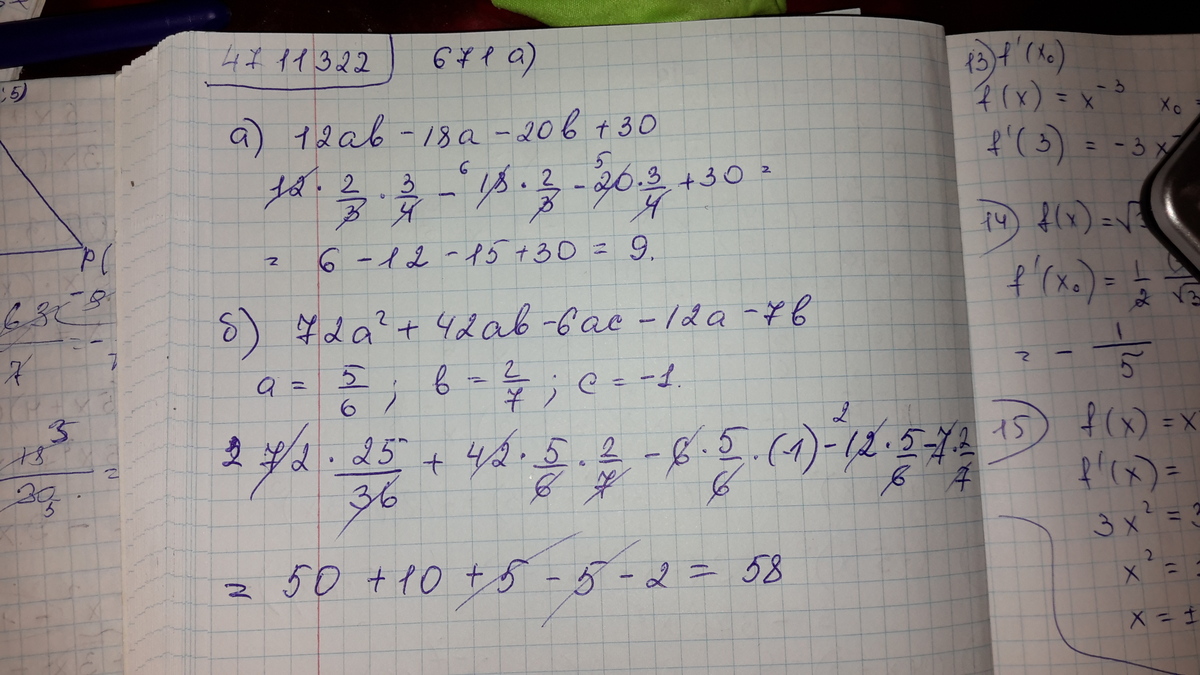 4711322 671 а)
а) 12ab - 18a - 20b + 30
12 · 2/3 · 3/4 - 6 18 · 2/3 - 5 20 · 3/4 + 30 =
= 6 - 12 - 15 + 30 = 9.
б) 72a² + 42ab - 6ac - 12a - 7b
a = 5/6 ; b = 2/7 ; c = -1.
2 72 · 25/36 + 42 · 5/6 · 2/7 - 6 · 5/6 · (-1) - 2 12 · 5/6 - 7 · 2/7
= 50 + 10 + 5 - 5 - 2 = 58
13) f'(x₀)
f(x) = x⁻³ x₀
f'(3) = -3x
14) f(x) = √
f'(x₀) = 1/2
= - 1/5
15) f(x) = x
f'(x) =
3x² =
x² =
x = ±
P(